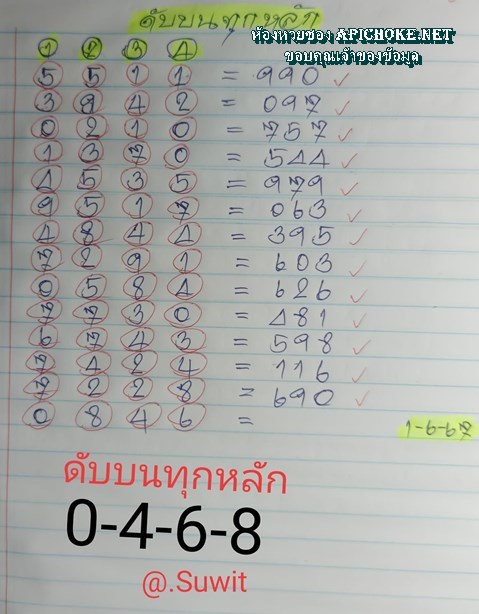 ดับบนทุกหลัก
ห้องหวยซอง APICHOKE.NET
ขอบคุณเจ้าของข้อมูล
1 2 3 4
5 5 1 1 = 990 ✓
3 9 4 2 = 097 ✓
0 2 1 0 = 757 ✓
1 3 7 0 = 544 ✓
4 5 3 5 = 979 ✓
9 5 1 7 = 063 ✓
4 8 4 4 = 395 ✓
7 2 9 1 = 603 ✓
0 5 8 4 = 626 ✓
7 7 3 0 = 481 ✓
6 7 4 3 = 598 ✓
7 4 2 4 = 116 ✓
7 2 2 8 = 690 ✓
0 8 4 6 =
1-6-67
ดับบนทุกหลัก
0-4-6-8
@.Suwit